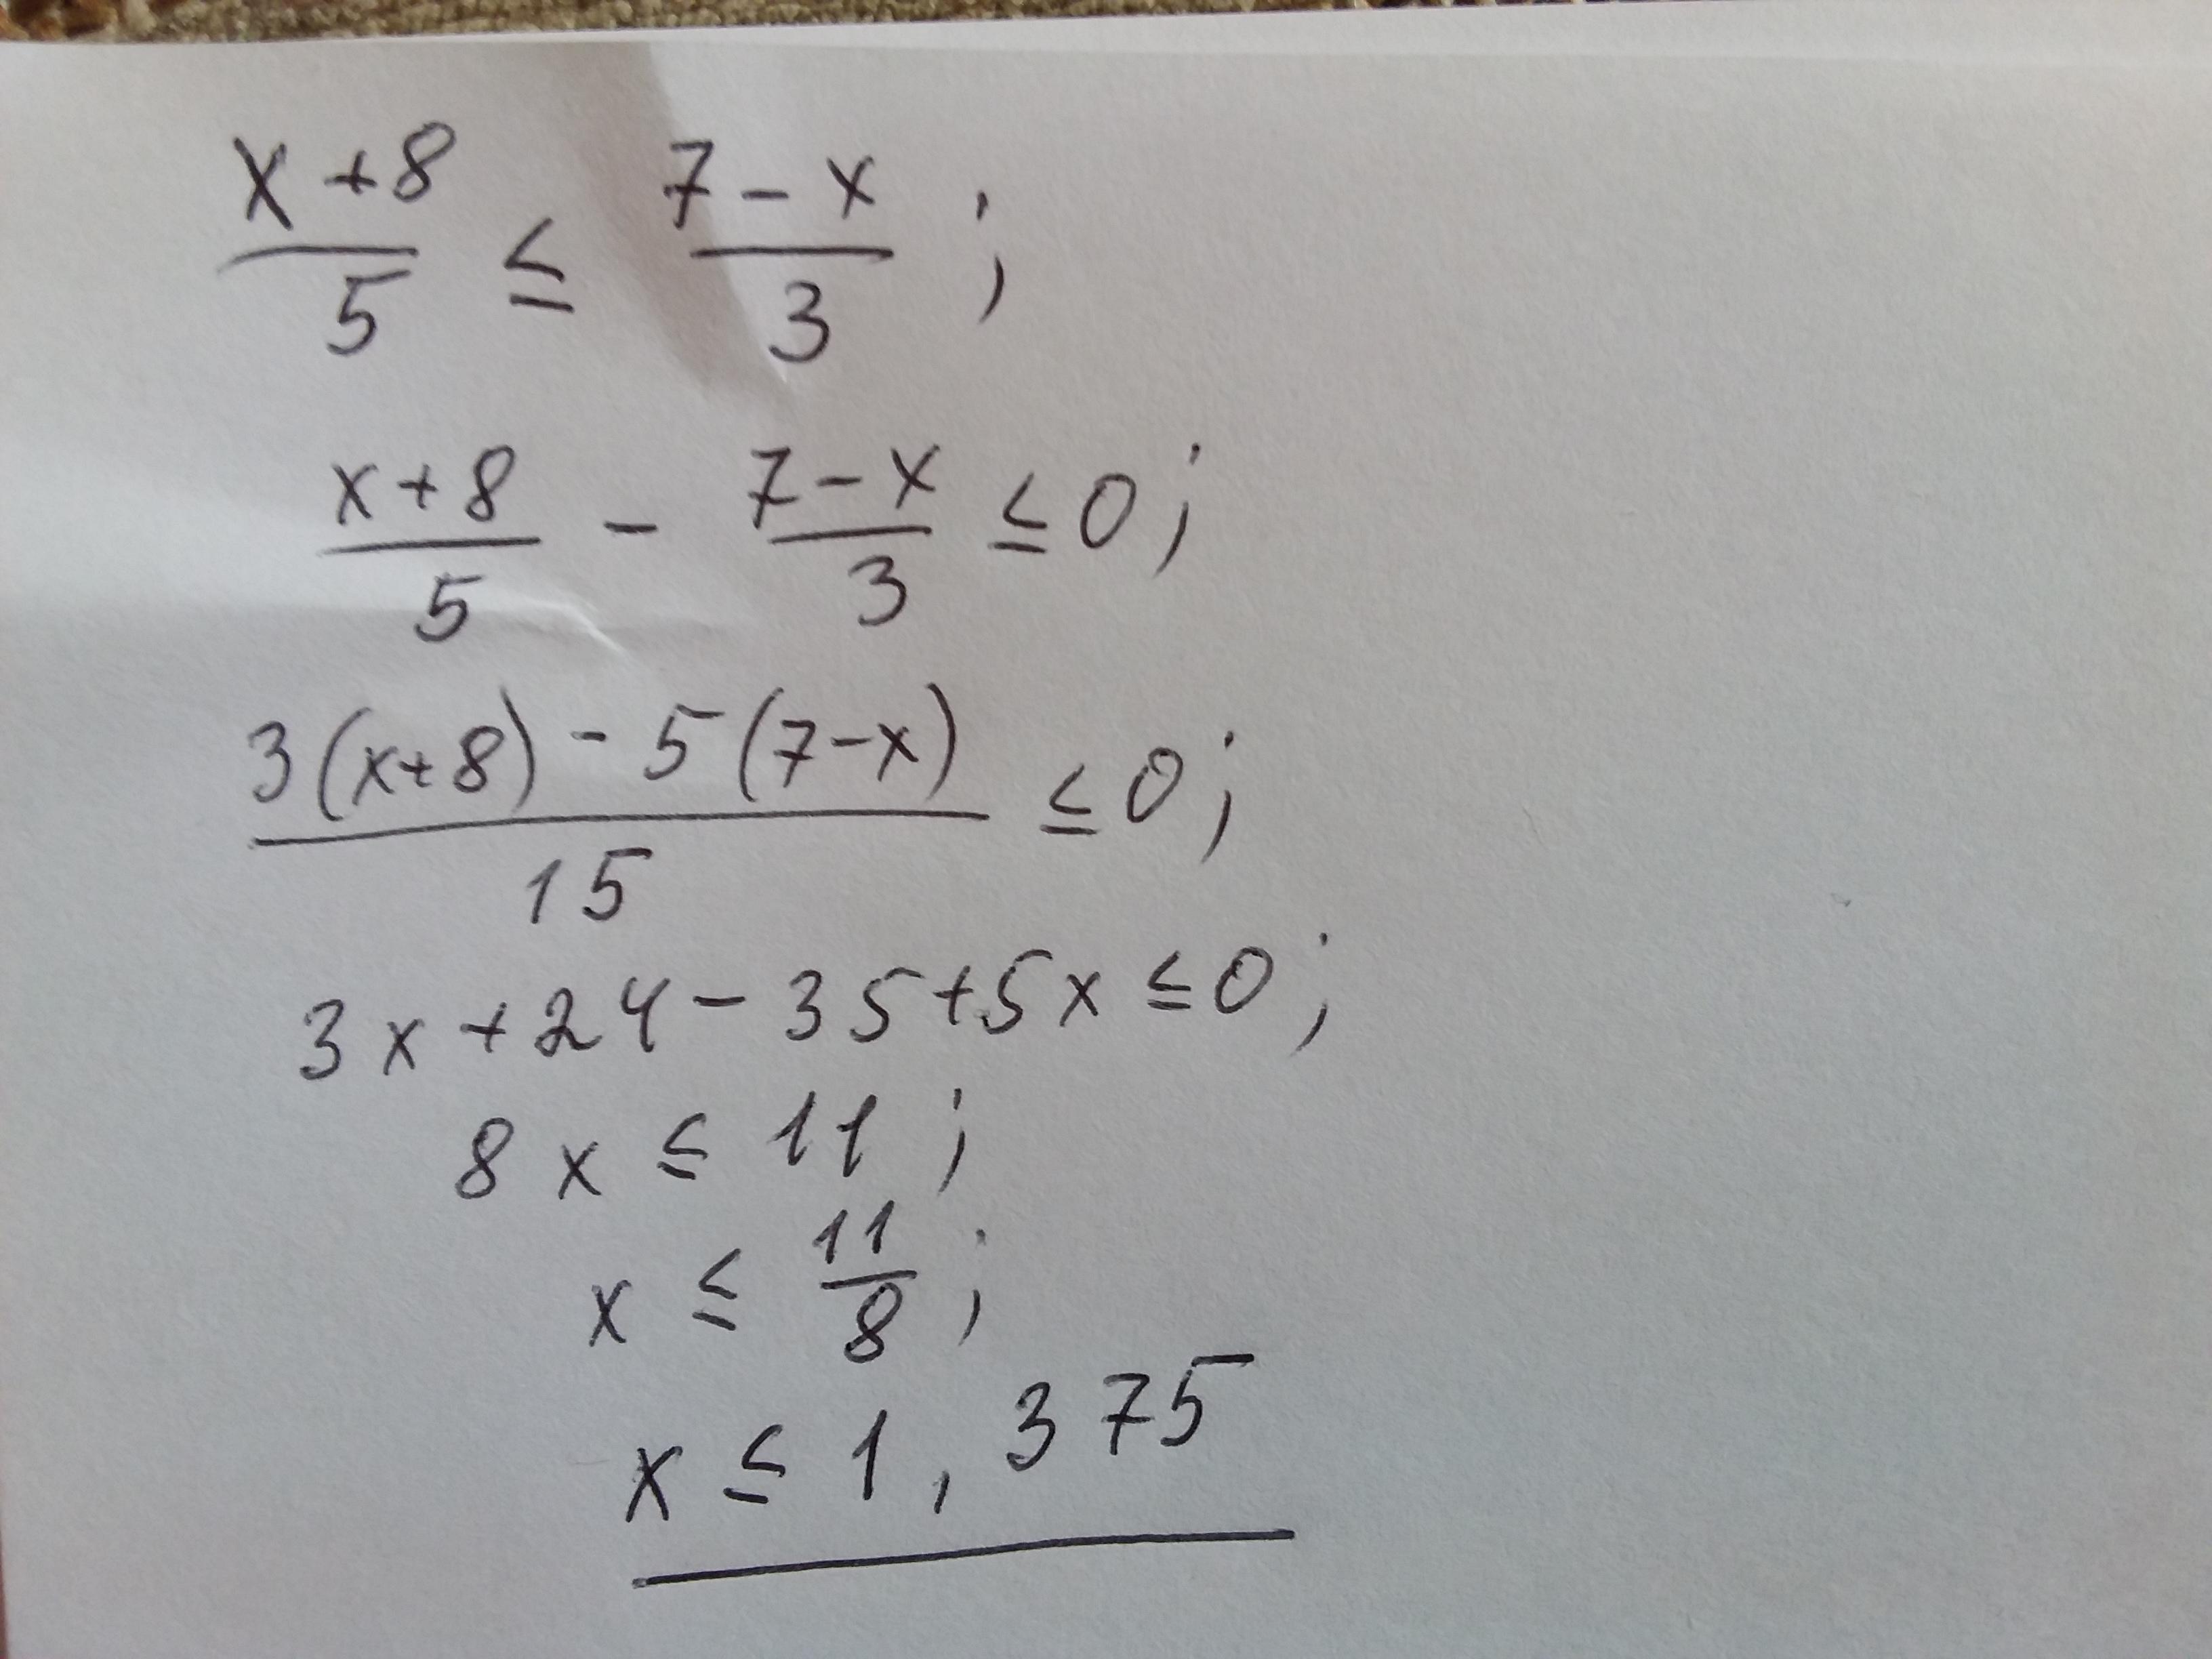 (x+8)/5 ≤ (7-x)/3 ;
(x+8)/5 - (7-x)/3 ≤ 0 ;
(3(x+8) - 5(7-x))/15 ≤ 0 ;
3x + 24 - 35 + 5x ≤ 0 ;
8x ≤ 11 ;
x ≤ 11/8 ;
x ≤ 1,375